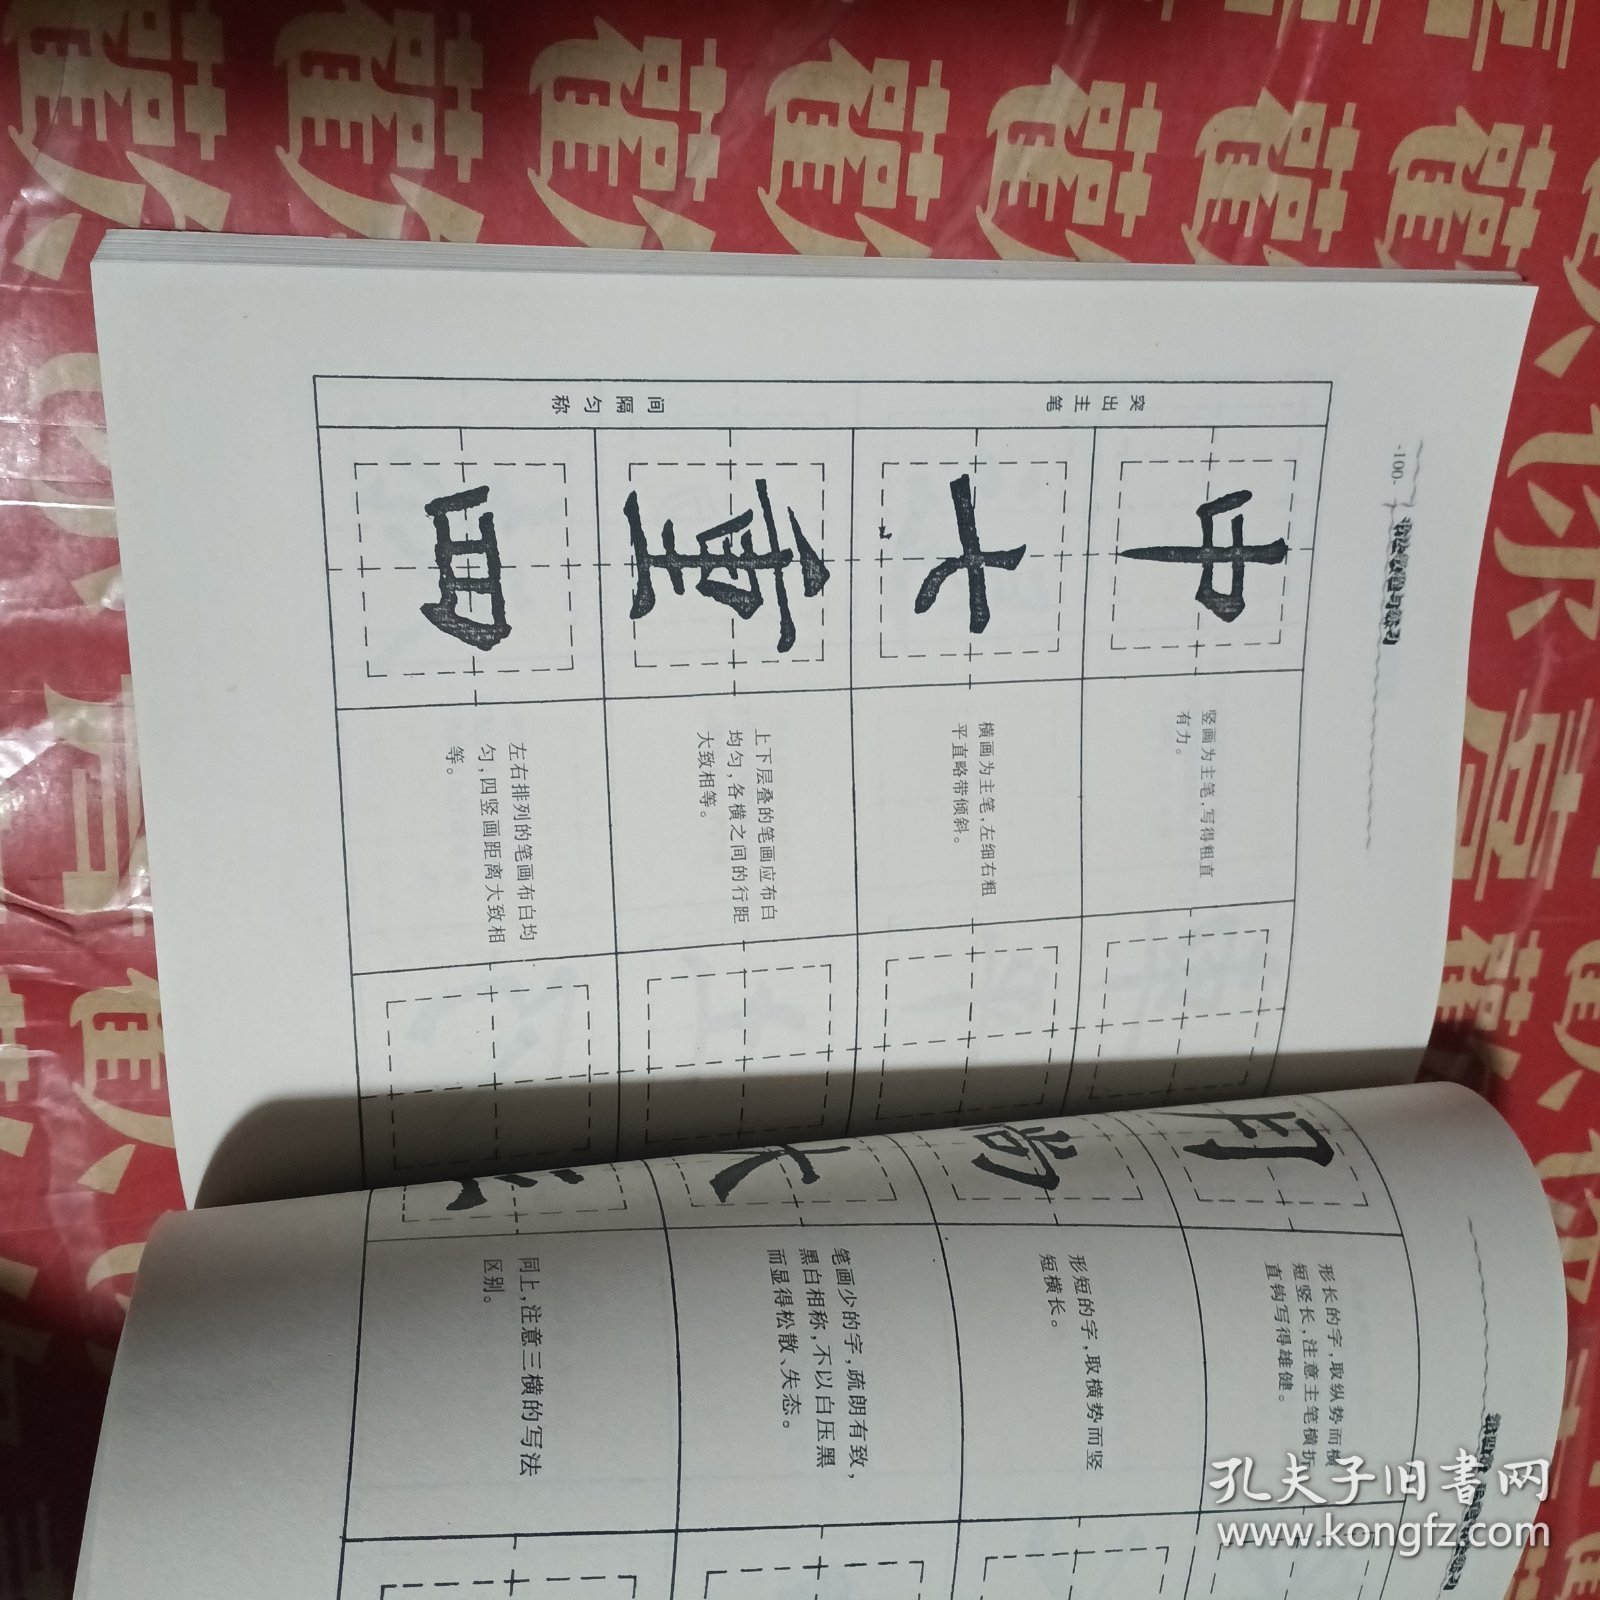 ·100·
突出主笔
中
竖画为主笔，写得粗直
有力。
十
横画为主笔，左细右粗
平直略带倾斜。
间隔匀称
重
上下层叠的笔画应布白
均匀，各横之间的行距
大致相等。
四
左右排列的笔画布白均
匀，四竖画距离大致相
等。
月
形长的字，取纵势而横
短竖长，注意主笔横折
直钩写得雄健。
形短的字，取横势而竖
短横长。
笔画少的字，疏朗有致，
黑白相称，不以白压黑
而显得松散、失态。
同上，注意三横的写法
区别。
孔夫子旧书网
www.kongfz.com